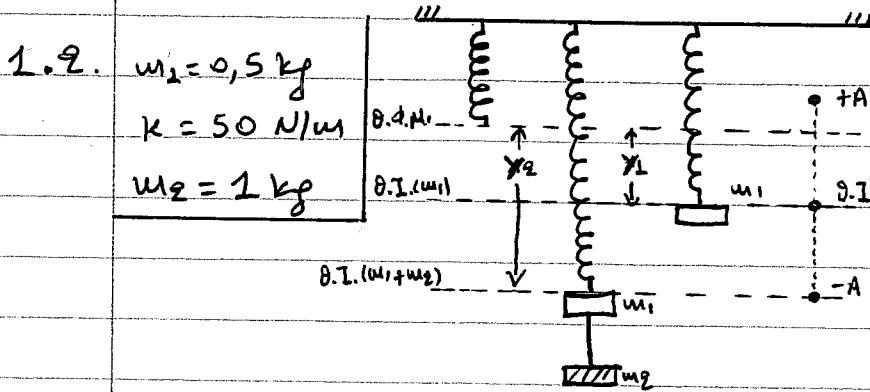 1.2.
m₁ = 0,5 kg
k = 50 N/m
m₂ = 1 kg
Θ.Φ.Μ.
Θ.Ι.(m₁)
Θ.Ι.(m₁+m₂)
y₂
y₁
m₁
m₁
m₂
+A
Θ.Ι
-A